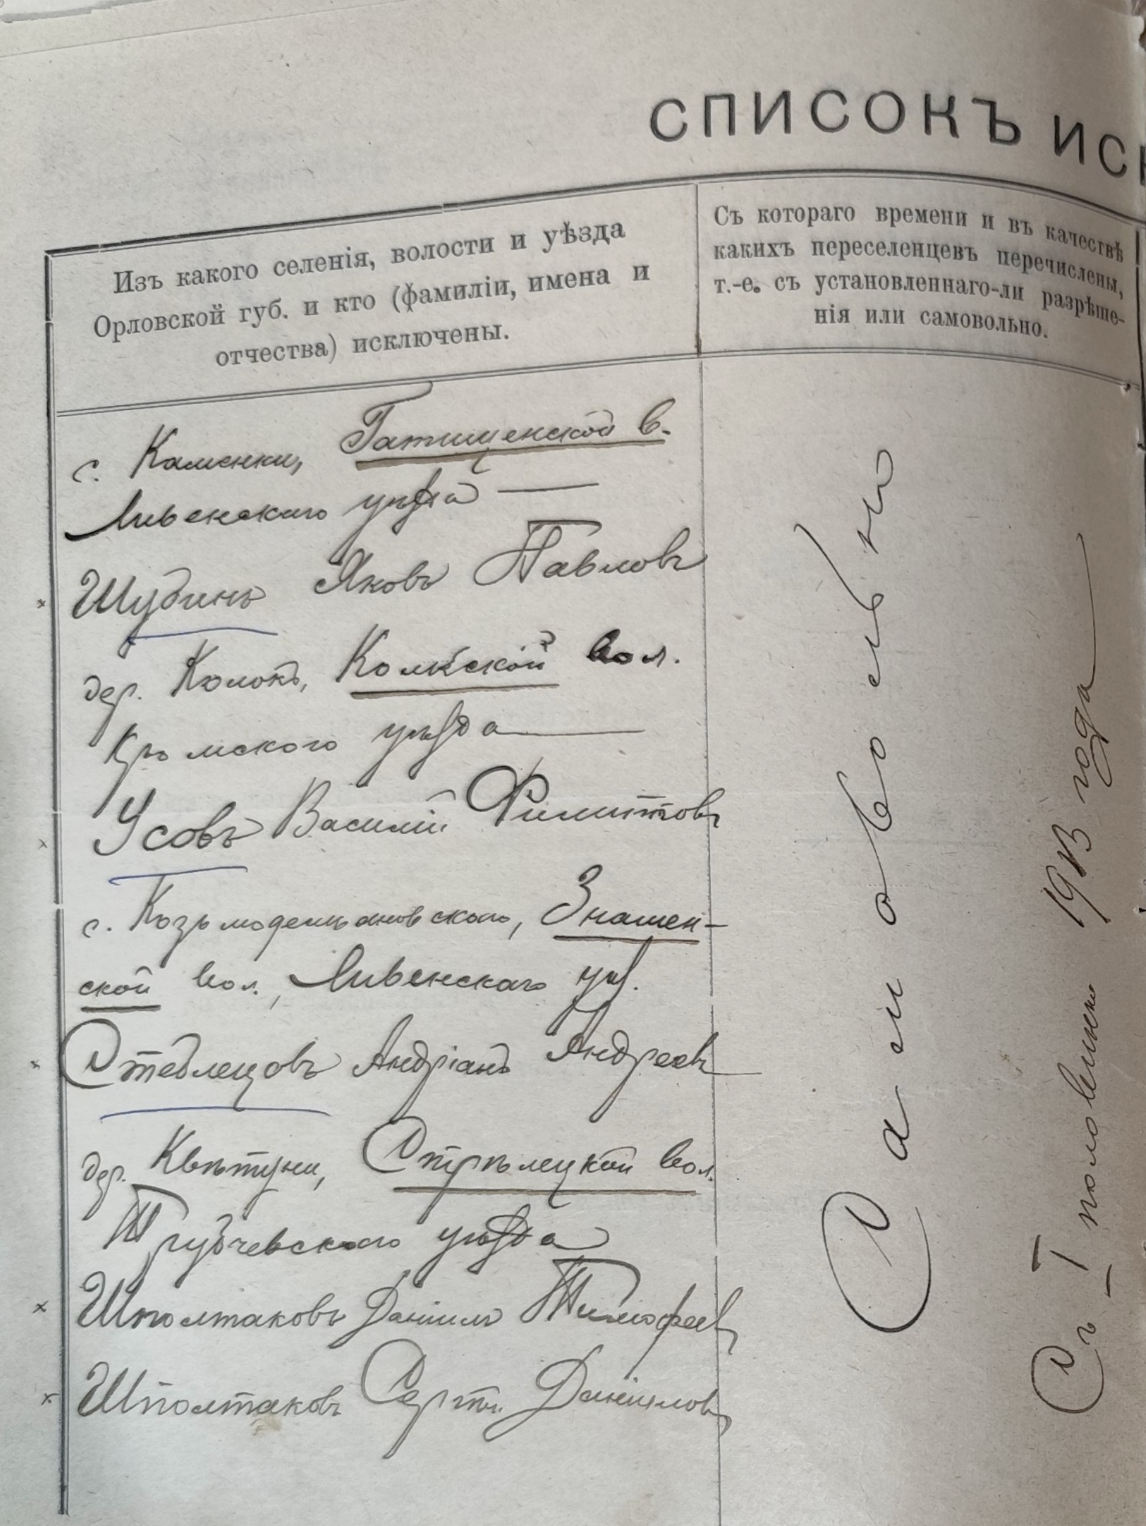 СПИСОКЪ ИСК
Изъ какого селенія, волости и уѣзда
Орловской губ. и кто (фамиліи, имена и
отчества) исключены.
Съ котораго времени и въ качествѣ
какихъ переселенцевъ перечислены,
т.-е. съ установленнаго-ли разрѣше-
нія или самовольно.
с. Каменки, Гатищенской в.
Ливенскаго уѣзда —
Шубинъ Яковъ Павловъ
дер. Колокъ, Колкской вол.
Кромского уѣзда —
Усовъ Василій Филиповъ
с. Козьмодемьяновскаго, Знамен-
ской вол., Ливенскаго уѣз.
Стеблецовъ Андріанъ Андреевъ
дер. Квѣтуни, Стрѣлецкой вол.
Трубчевского уѣзда
Шполтаковъ Даніилъ Тимофеев
Шполтаковъ Сергѣй Даніиловъ
Самовольно
Съ I половины 1913 года